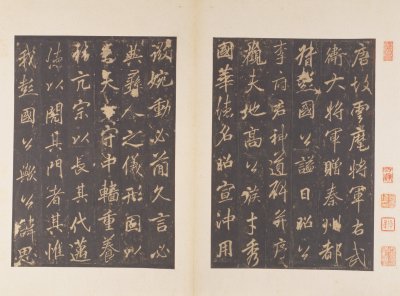 唐故雲麾將軍右武
衛大將軍贈秦州都
督彭國公謚曰昭公
李府君神道碑并序
觀夫地高公族才秀
國華德名昭宣沖用
微婉動必簡久言必
典彝之儀形國以
守中轓重養
亢宗以長其代邁
德以閎其門者其惟
我彭國公歟公諱思